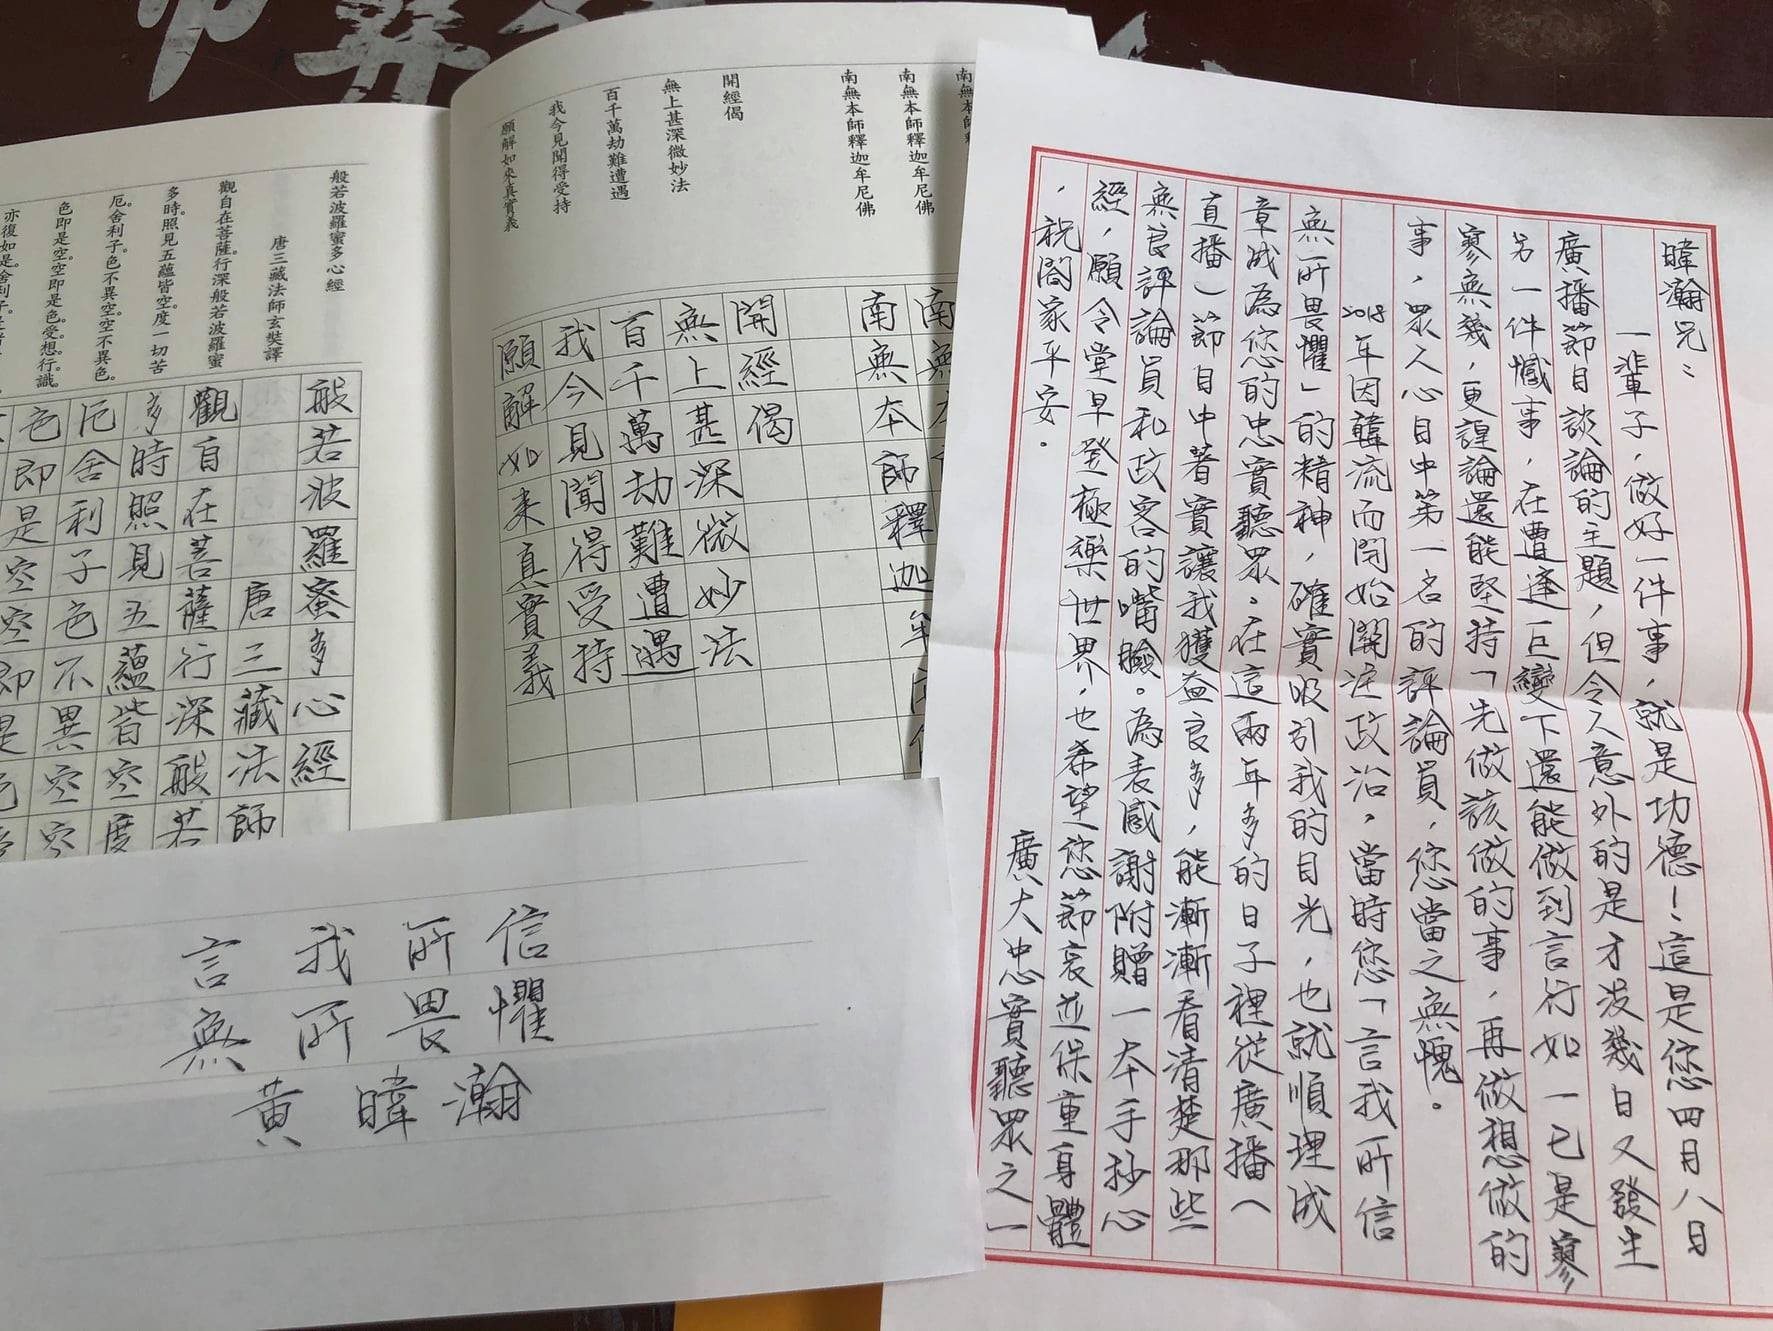 暐瀚兄：
一輩子，做好一件事，就是功德！這是您四月八日
廣播節目談論的主題，但令人意外的是才沒幾日又發生
另一件憾事，在遭逢巨變下還能做到言行如一已是寥
寥無幾，更遑論還能堅持「先做該做的事，再做想做的
事，眾人心目中第一名的評論員，您當之無愧。
2018年因韓流而開始關注政治，當時您「言我所信
無所畏懼」的精神，確實吸引我的目光，也就順理成
章成為您的忠實聽眾。在這兩年多的日子裡從廣播（
直播）節目中著實讓我獲益良多，能漸漸看清楚那些
無良評論員和政客的嘴臉。為表感謝附贈一本手抄心
經，願令堂早登極樂世界，也希望您節哀並保重身體
，祝閤家平安。
廣大忠實聽眾之一
南無本師釋
南無本師釋迦牟尼佛
南無本師釋迦牟尼佛
開經偈
無上甚深微妙法
百千萬劫難遭遇
我今見聞得受持
願解如來真實義
南無本
南無本師釋迦牟
開經偈
無上甚深微妙法
百千萬劫難遭遇
我今見聞得受持
願解如來真實義
般若波羅蜜多心經
唐三藏法師玄奘譯
觀自在菩薩。行深般若波羅蜜
多時。照見五蘊皆空。度一切苦
厄。舍利子。色不異空。空不異色。
色即是空。空即是色。受想行識。
亦復如是。舍利子。
般若波羅蜜多心經
唐三藏法師
觀自在菩薩行深般若
多時照見五蘊皆空度
厄舍利子色不異空空
色即是空空即是色
信所我言
懼畏所無
瀚暐黃